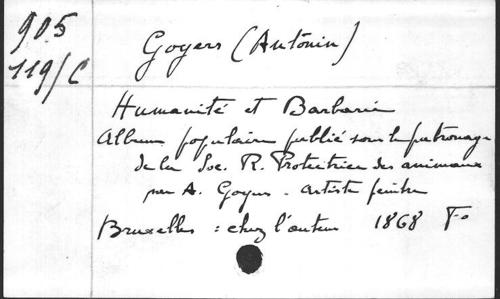 905
119/C
Goyers (Antonin)
Humanité et Barbarie
Album populaire publié sous le patronage
de la Soc. R. Protectrice des animaux
par A. Goyers - artiste peintre
Bruxelles : chez l'auteur 1868 F°